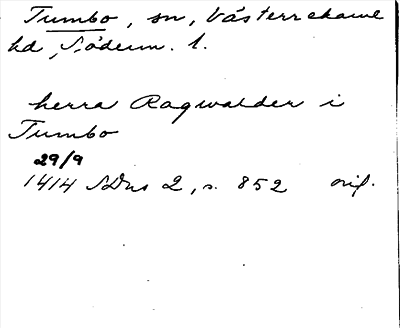 Tumbo, sn, Västerrekarne
hd, Söderm. l.
herra Ragwalder i
Tumbo
29/9
1414 SDns 2, s. 852 orig.